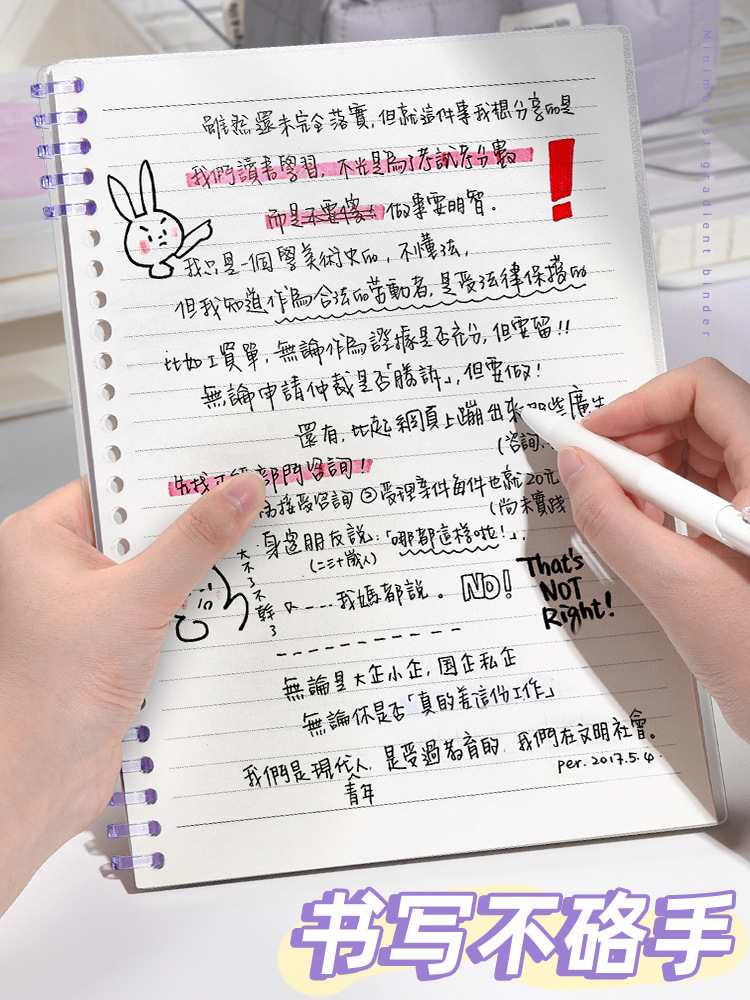 雖然還未完全落實，但就這件事我想分享的是
我們讀書學習，不光是為了考試考分數
而是不要傻！做事要明智。
我只是一個學美術史的，不懂法，
但我知道作為合法的勞動者，是受法律保護的
比如工資單，無論作為證據是否充分，但要留!!
無論申請仲裁是否「勝訴」，但要做！
還有，比起網頁上蹦出來那些廣告
(咨詢
先找
部門咨詢！
接受咨詢 ②受理案件每件也就20元
(尚未實踐
身邊朋友說：「哪都這樣啦！」.
(二三十歲人)
大不了不幹了
又----我媽都說。
NO!
That's
NOT
Right!
無論是大企小企，國企私企
無論你是否「真的差這份工作」
我們是現代人，是受過教育的，我們在文明社會。
青年
per. 2017.5.4.
Minimalist gradient binder
书写不硌手